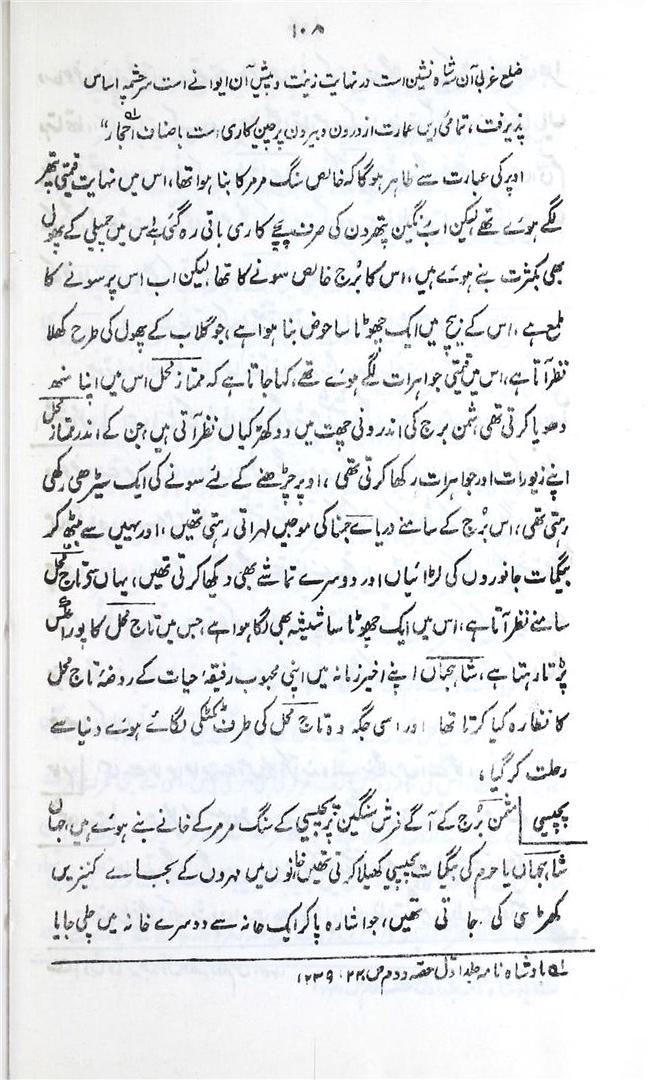 ۱۰۸
ضلع غربی آن شاہ نشین است در نہایت زینت و پیش آن ایوانے است سرچشمہ اساس
پذیرفت، تمامی ایں عمارت از درون و بیرون پرچین کاری است باصناف احجار" لہ
اوپر کی عبارت سے ظاہر ہوگا کہ خالص سنگ مرمر کا بنا ہوا تھا، اس میں نہایت قیمتی پتھر
لگے ہوئے تھے لیکن اب رنگین پتھروں کی صرف پچے کاری باقی رہ گئی ہے، اس میں چمبیلی کے پھول
بھی بکثرت بنے ہوئے ہیں، اس کا برج خالص سونے کا تھا لیکن اب اس پر سونے کا
ملمع ہے، اس کے بیچ میں ایک چھوٹا سا حوض بنا ہوا ہے، جو گلاب کے پھول کی طرح کھلا
نظر آتا ہے، اس میں قیمتی جواہرات لگے ہوئے تھے، کہا جاتا ہے کہ ممتاز محل اس میں اپنا منھ
دھویا کرتی تھی، مثمن برج کی اندرونی چھت میں دو کھڑکیاں نظر آتی ہیں، جن کے اندر ممتاز محل
اپنے زیورات اور جواہرات رکھا کرتی تھی، اوپر چڑھنے کے لئے سونے کی ایک سیڑھی رکھی
رہتی تھی، اس برج کے سامنے دریائے جمنا کی موجیں لہراتی رہتی تھیں، اور یہیں سے بیٹھ کر
بیگمات جانوروں کی لڑائیاں اور دوسرے تماشے بھی دیکھا کرتی تھیں، یہاں سے تاج محل
سامنے نظر آتا ہے، اس میں ایک چھوٹا سا شیشہ بھی لگا ہوا ہے، جس میں تاج محل کا پورا عکس
پڑتا رہتا ہے، شاہجہاں اپنے اخیر زمانہ میں اپنی محبوب رفیقۂ حیات کے روضہ تاج محل
کا نظارہ کیا کرتا تھا اور اسی جگہ وہ تاج محل کی طرف ٹکٹکی لگائے ہوئے دنیا سے
رحلت کر گیا،
پچیسی مثمن برج کے آگے فرش سنگین پر پچیسی کے سنگ مرمر کے خانے بنے ہوئے ہیں، جہاں
شاہجہاں یا حرم کی بیگمات پچیسی کھیلا کرتی تھیں خانوں میں مہروں کے بجائے کنیزیں
کھڑی کی جاتی تھیں، جو اشارہ پا کر ایک خانہ سے دوسرے خانہ میں چلی جایا
لہ بادشاہ نامہ جلد اول حصہ دوم ص ۲۳۸، ۲۳۹،